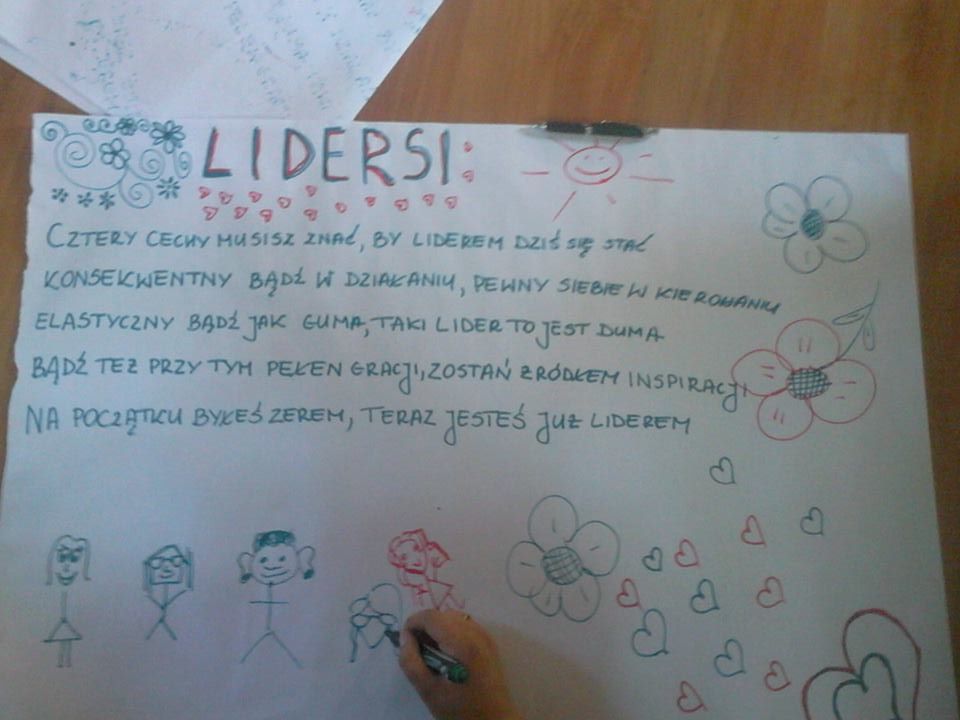 LIDERSI:
CZTERY CECHY MUSISZ ZNAĆ, BY LIDEREM DZIŚ SIĘ STAĆ
KONSEKWENTNY BĄDŹ W DZIAŁANIU, PEWNY SIEBIE W KIEROWANIU
ELASTYCZNY BĄDŹ JAK GUMA, TAKI LIDER TO JEST DUMA
BĄDŹ TEŻ PRZY TYM PEŁEN GRACJI, ZOSTAŃ ŹRÓDŁEM INSPIRACJI
NA POCZĄTKU BYŁEŚ ZEREM, TERAZ JESTEŚ JUŻ LIDEREM